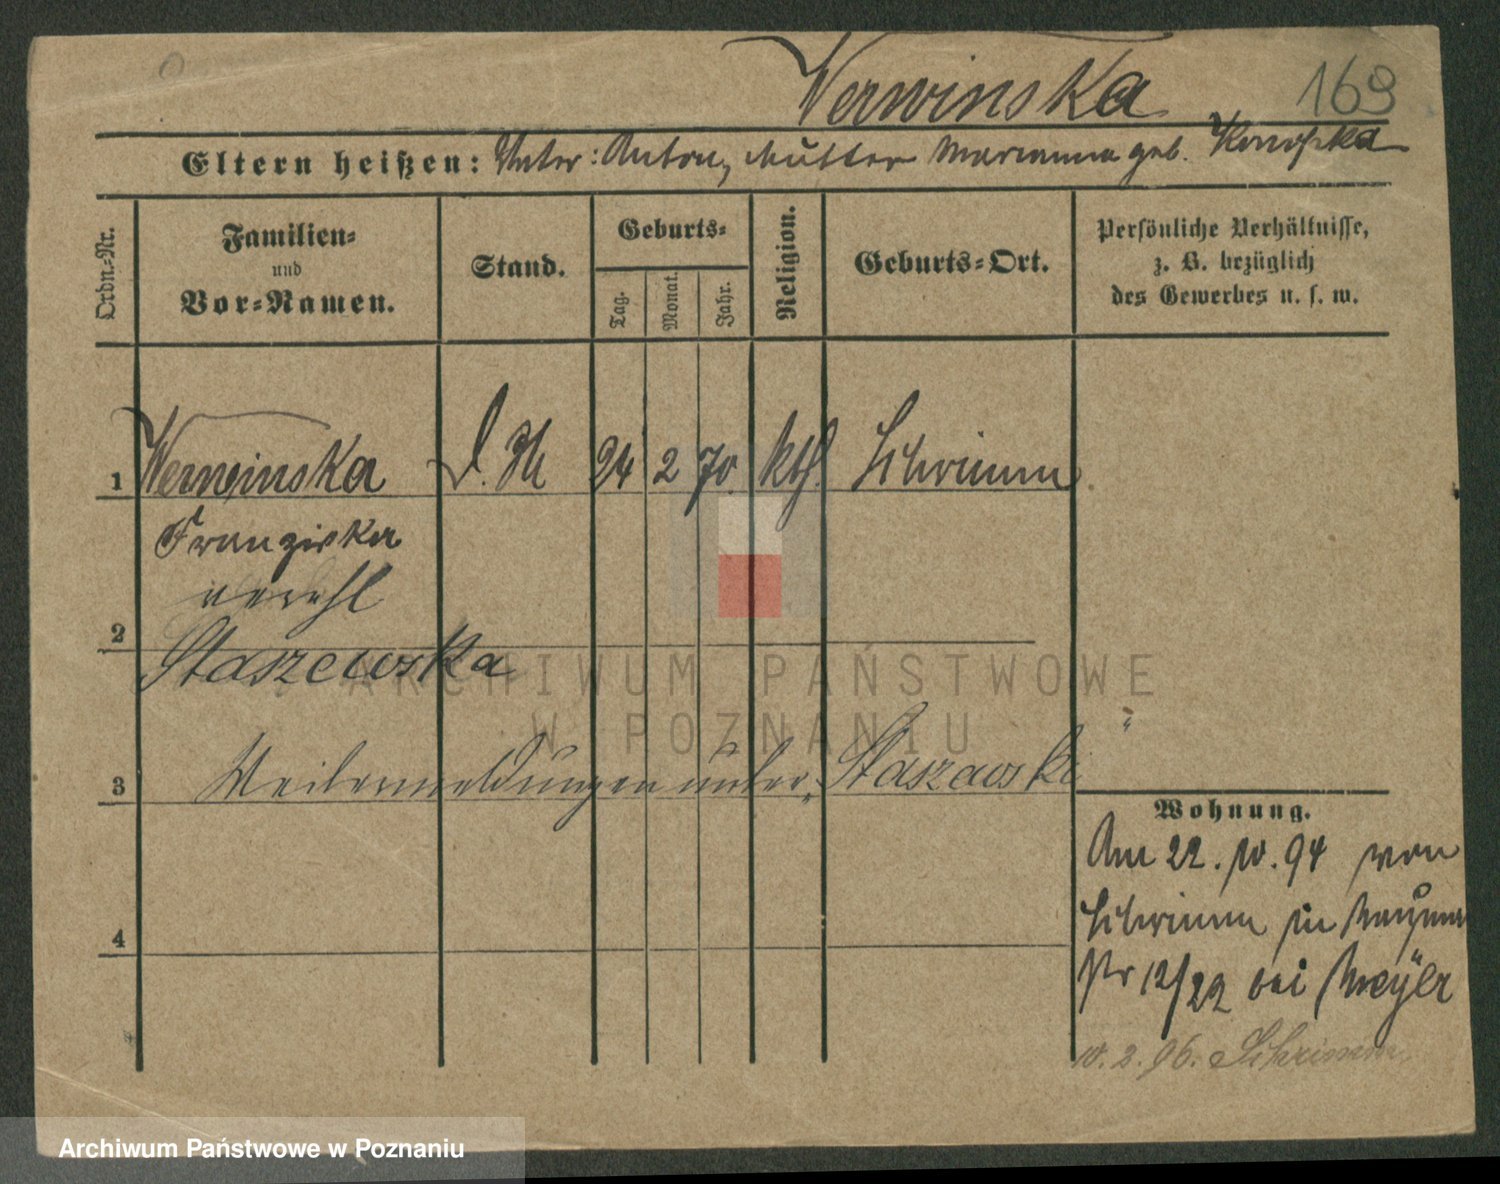 Werwinska 169
Eltern heißen: Vater: Anton, Mutter Marianna geb. Konopka
Ordn.-Nr.
Familien-
und
Vor-Namen.
Stand.
Geburts-
Tag.
Monat.
Jahr.
Religion.
Geburts-Ort.
Persönliche Verhältnisse,
z. B. bezüglich
des Gewerbes u. s. w.
1 Werwinska D. M 24 2 70. kth. Schrimm
Franziska
verehl
2
Staszewska
ARCHIWUM PAŃSTWOWE
W POZNANIU
3 Weitermeldungen unter „Staszewski“
Wohnung.
Am 22. 10. 94 von
Schrimm in
4
Nr 12/22 bei Meyer
10. 2. 96. Schrimm
Archiwum Państwowe w Poznaniu